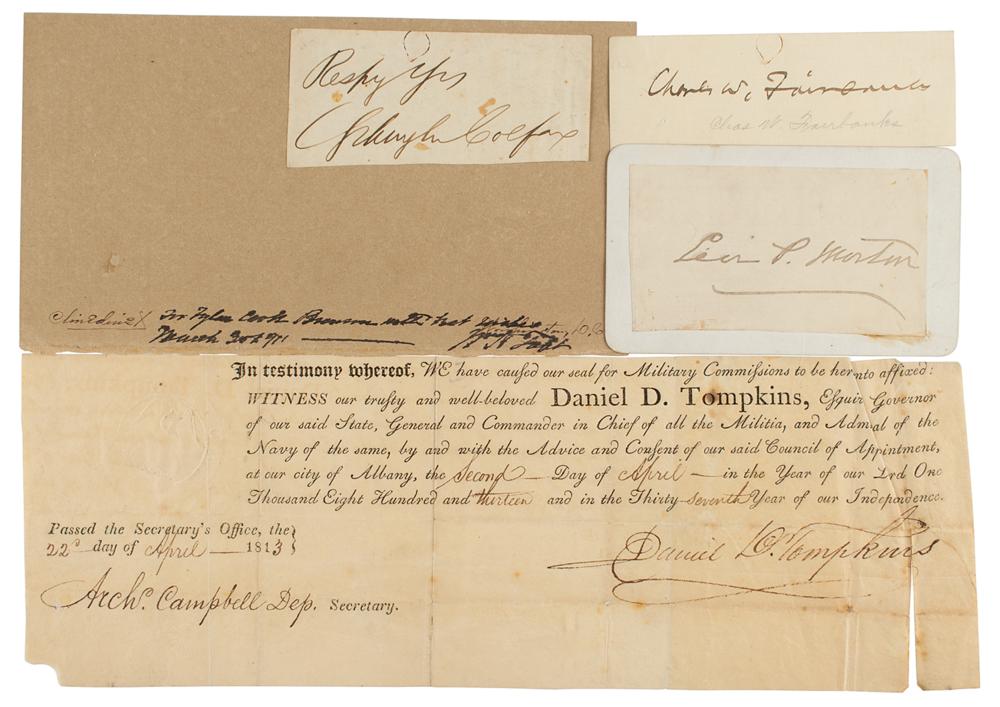 Respy Yrs
Schuyler Colfax
Charles W. Fairbanks
Chas W. Fairbanks
Levi P. Morton
For Tyler Cook Bronson with best wishes
March 3rd
In testimony whereof, WE have caused our seal for Military Commissions to be hernto affixed:
WITNESS our trusty and well-beloved Daniel D. Tompkins, Esquir Governor
of our said State, General and Commander in Chief of all the Militia, and Admal of the
Navy of the same, by and with the Advice and Consent of our said Council of Appintment,
at our city of Albany, the Second Day of April in the Year of our Lrd One
Thousand Eight Hundred and thirteen and in the Thirty-seventh Year of our Independence.
Passed the Secretary's Office, the
22d day of April 1813
Daniel D. Tompkins
Archd. Campbell Dep. Secretary.